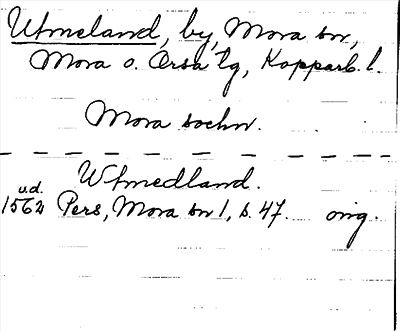 Utmeland, by, Mora sn,
Mora o. Orsa tg, Kopparb. l.
Mora sochn.
Wtmedland.
u.d.
1562 Pers, Mora sn 1, s. 47. orig.